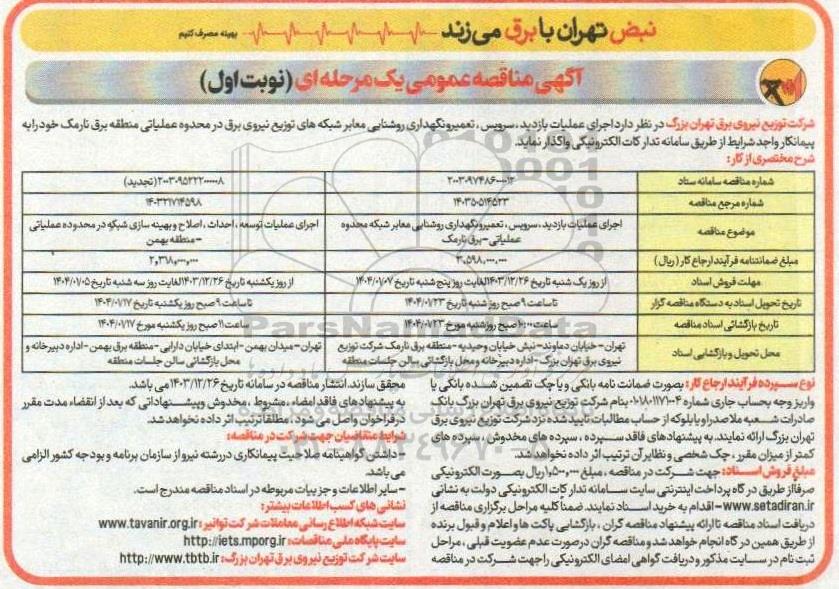 نبض تهران با برق می زند
بهینه مصرف کنیم
آگهی مناقصه عمومی یک مرحله ای (نوبت اول)
شرکت توزیع نیروی برق تهران بزرگ در نظر دارد اجرای عملیات بازدید، سرویس، تعمیر و نگهداری روشنایی معابر شبکه های توزیع نیروی برق در محدوده عملیاتی منطقه برق نارمک خود را به
پیمانکار واجد شرایط از طریق سامانه تدارکات الکترونیکی واگذار نماید.
شرح مختصری از کار:
شماره مناقصه سامانه ستاد
شماره مرجع مناقصه ۱۴۰۳۵۰۵۱۴۵۲۳ ۱۴۰۳۲۱۷۱۴۵۹۸
موضوع مناقصه اجرای عملیات بازدید، سرویس، تعمیر و نگهداری روشنایی معابر شبکه محدوده عملیاتی - برق نارمک اجرای عملیات توسعه، احداث، اصلاح و بهینه سازی شبکه در محدوده عملیاتی - منطقه بهمن
مبلغ ضمانتنامه فرآیند ارجاع کار (ریال) ۳,۵۹۸,۰۰۰,۰۰۰ ۲,۳۱۸,۰۰۰,۰۰۰
مهلت فروش اسناد از روز یک شنبه تاریخ ۱۴۰۳/۱۲/۲۶ لغایت روز پنج شنبه تاریخ ۱۴۰۴/۰۱/۰۷ از روز یکشنبه تاریخ ۱۴۰۳/۱۲/۲۶ لغایت روز سه شنبه تاریخ ۱۴۰۴/۰۱/۰۵
تاریخ تحویل اسناد به دستگاه مناقصه گزار تا ساعت ۹ صبح روز شنبه تاریخ ۱۴۰۴/۰۱/۲۳ تا ساعت ۹ صبح روز یکشنبه تاریخ ۱۴۰۴/۰۱/۱۷
تاریخ بازگشائی اسناد مناقصه ساعت ۱۰:۰۰ صبح روز شنبه مورخ ۱۴۰۴/۰۱/۲۳ ساعت ۱۱ صبح روز یکشنبه مورخ ۱۴۰۴/۰۱/۱۷
محل تحویل و بازگشایی اسناد تهران - خیابان دماوند - نبش خیابان وحیدیه - منطقه برق نارمک شرکت توزیع نیروی برق تهران بزرگ - اداره دبیرخانه و محل بازگشائی سالن جلسات منطقه تهران - میدان بهمن - ابتدای خیابان دارابی - منطقه برق بهمن - اداره دبیرخانه و محل بازگشائی سالن جلسات منطقه
نوع سپرده فرآیند ارجاع کار: بصورت ضمانت نامه بانکی و یا چک تضمین شده بانکی یا
واریز وجه بحساب جاری شماره ۰۱۰۱۸۰۱۱۷۱۰۰۴ بنام شرکت توزیع نیروی برق تهران بزرگ بانک
صادرات شعبه ملاصدرا و یا بلوکه از حساب مطالبات تایید شده نزد شرکت توزیع نیروی برق
تهران بزرگ ارائه نمایند. به پیشنهادهای فاقد سپرده، سپرده های مخدوش، سپرده های
کمتر از میزان مقرر، چک شخصی و نظایر آن ترتیب اثر داده نخواهد شد.
مبلغ فروش اسناد: جهت شرکت در مناقصه، مبلغ ۱,۵۰۰,۰۰۰ ریال بصورت الکترونیکی
صرفا از طریق درگاه پرداخت اینترنتی سایت سامانه تدارکات الکترونیکی دولت به نشانی
www.setadiran.ir - اقدام به خرید اسناد نمایند. ضمنا کلیه مراحل برگزاری مناقصه از
دریافت اسناد مناقصه تا ارائه پیشنهاد مناقصه گران، بازگشایی پاکت ها و اعلام و قبول برنده
از طریق همین درگاه انجام خواهد شد و مناقصه گران در صورت عدم عضویت قبلی، مراحل
ثبت نام در سایت مذکور و دریافت گواهی امضای الکترونیکی را جهت شرکت در مناقصه
محقق سازند. انتشار مناقصه در سامانه تاریخ ۱۴۰۳/۱۲/۲۶ می باشد.
به پیشنهادهای فاقد امضاء، مشروط، مخدوش و پیشنهاداتی که بعد از انقضاء مدت مقرر
در فراخوان واصل می شود، مطلقا ترتیب اثر داده نخواهد شد.
شرایط متقاضیان جهت شرکت در مناقصه:
- داشتن گواهینامه صلاحیت پیمانکاری در رشته نیرو از سازمان برنامه و بودجه کشور الزامی
می باشد.
- سایر اطلاعات و جزییات مربوطه در اسناد مناقصه مندرج است.
نشانی های کسب اطلاعات بیشتر:
سایت شبکه اطلاع رسانی معاملات شرکت توانیر: www.tavanir.org.ir
سایت پایگاه ملی مناقصات: http://iets.mporg.ir
سایت شرکت توزیع نیروی برق تهران بزرگ: http://www.tbtb.ir